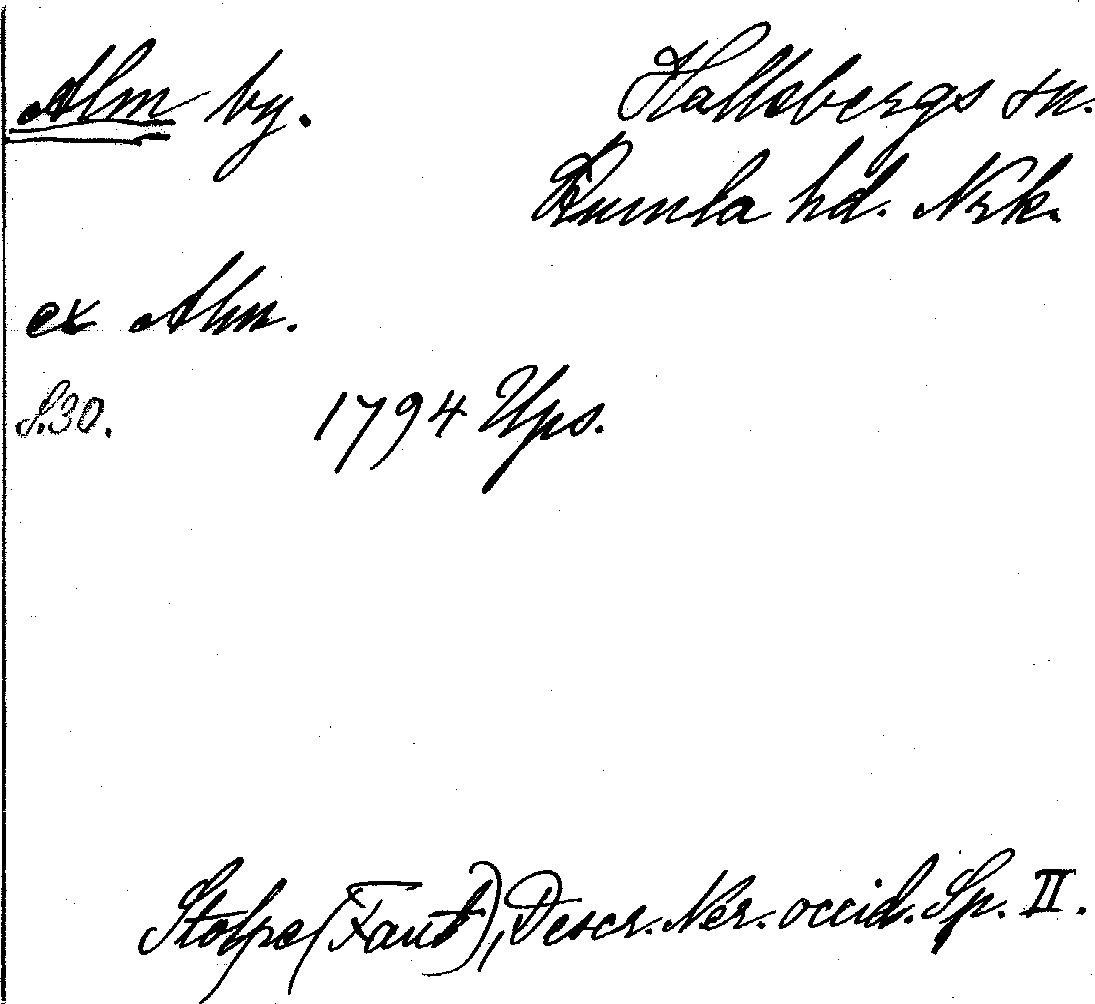 Alm by. Hallsbergs sn.
Kumla hd. Nrk.
ex Alm.
S.30. 1794 Ups.
Stolpe (Fant), Descr. Ner. occid. Sp. II.